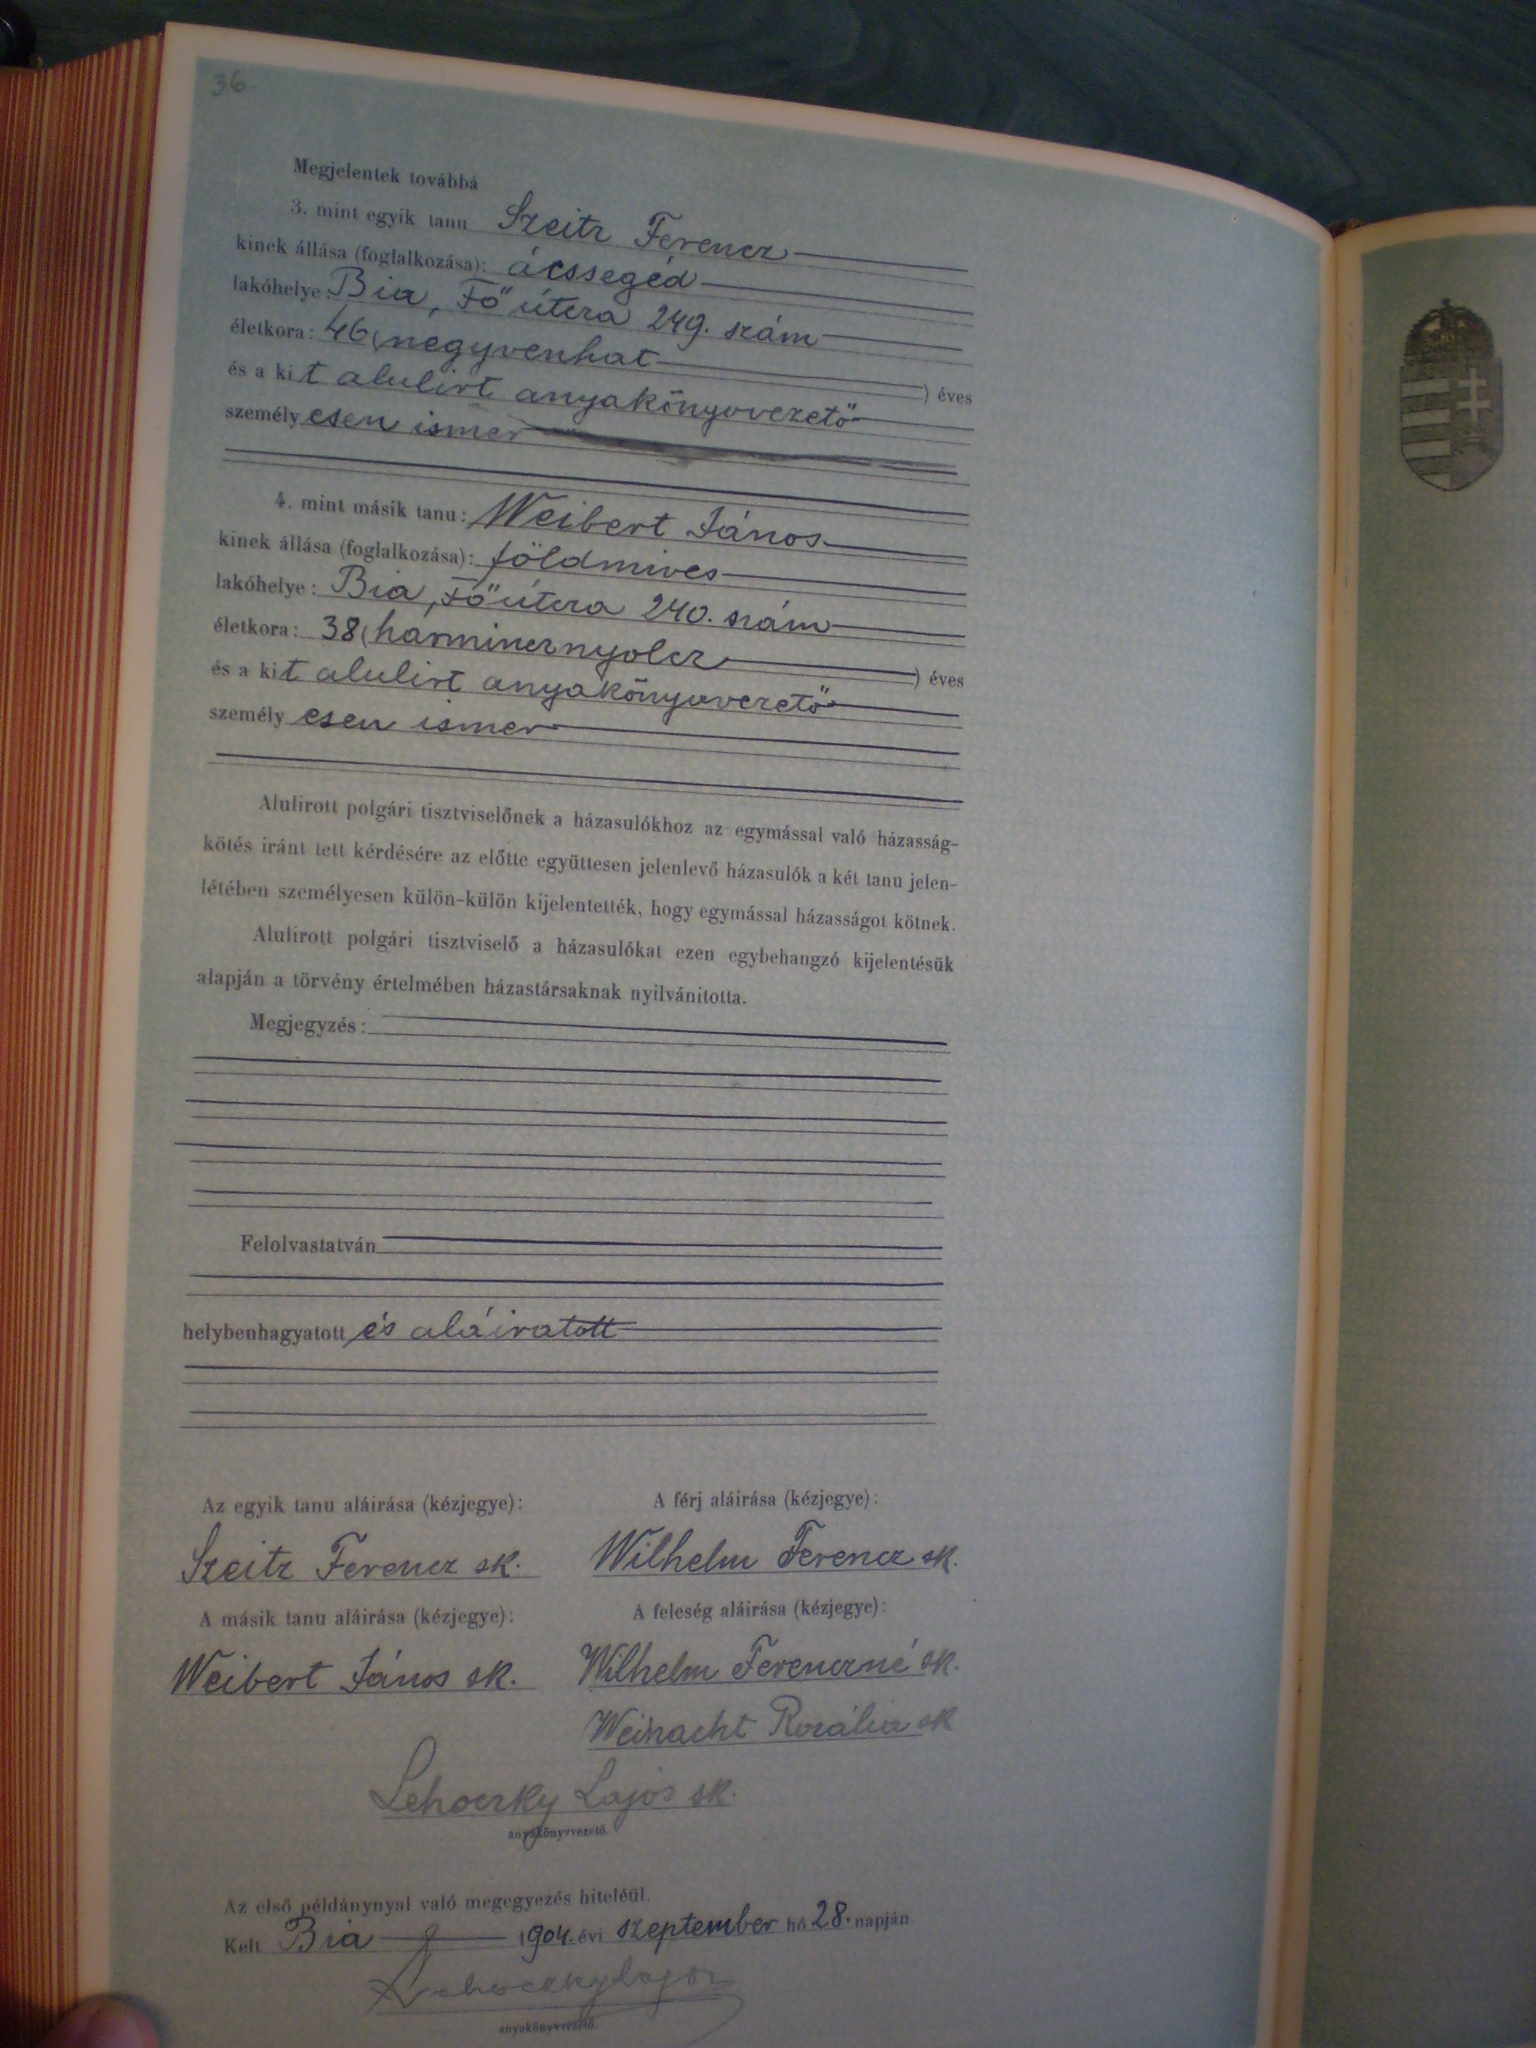 36.
Megjelentek továbbá
3. mint egyik tanu Szeitz Ferencz
kinek állása (foglalkozása): ácssegéd
lakóhelye: Bia, Fő útcza 249. szám
életkora: 46 (negyvenhat ) éves
és a kit alulirt anyakönyvvezető
személyesen ismer
4. mint másik tanu: Weibert János
kinek állása (foglalkozása): földmives
lakóhelye: Bia, Fő útcza 240. szám
életkora: 38 (harmincznyolcz ) éves
és a kit alulirt anyakönyvvezető
személyesen ismer
Alulirott polgári tisztviselőnek a házasulókhoz az egymással való házasság-
kötés iránt tett kérdésére az előtte együttesen jelenlevő házasulók a két tanu jelen-
létében személyesen külön-külön kijelentették, hogy egymással házasságot kötnek.
Alulirott polgári tisztviselő a házasulókat ezen egybehangzó kijelentésük
alapján a törvény értelmében házastársaknak nyilvánitotta.
Megjegyzés:
Felolvastatván
helybenhagyatott és aláiratott
Az egyik tanu aláirása (kézjegye): A férj aláirása (kézjegye):
Szeitz Ferencz sk. Wilhelm Ferencz sk.
A másik tanu aláirása (kézjegye): A feleség aláirása (kézjegye):
Weibert János sk. Wilhelm Ferenczné sk.
Weinacht Rozália sk
Lehoczky Lajos sk.
anyakönyvvezető.
Az első példánynyal való megegyezés hiteléül.
Kelt Bia 1904. évi szeptember hó 28. napján
Lehoczky Lajos
anyakönyvvezető.